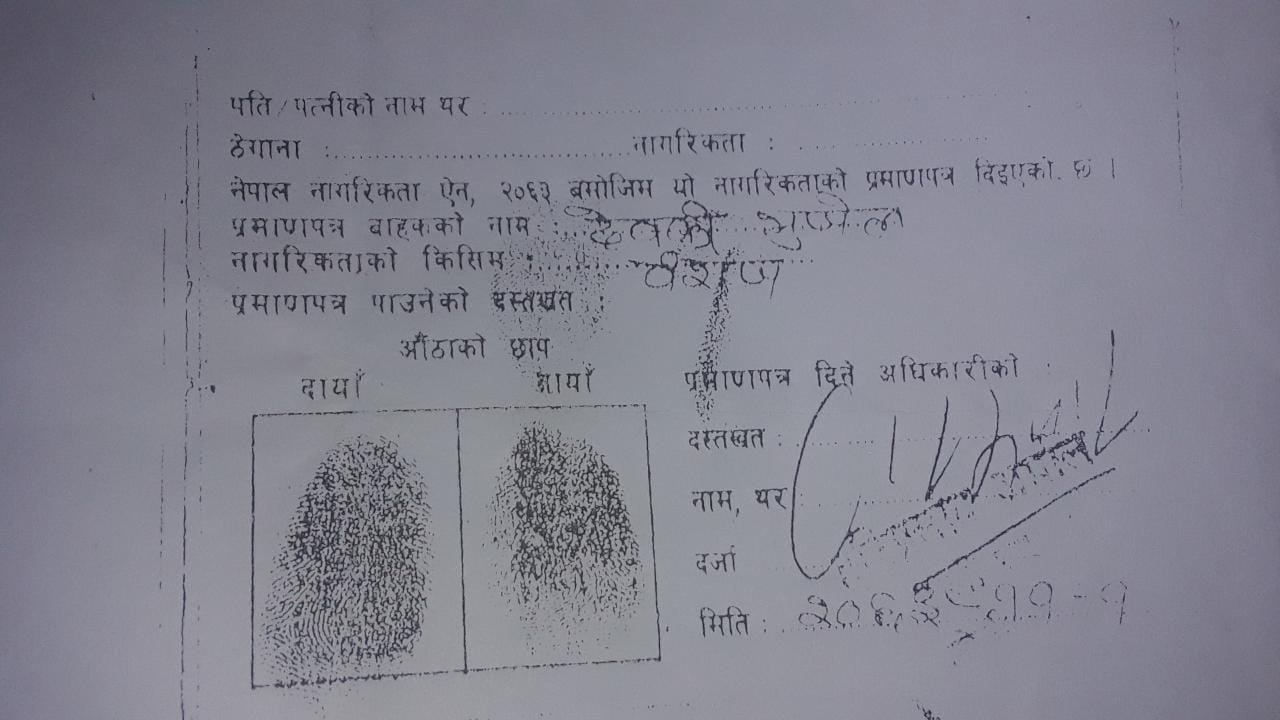 पति/पत्नीको नाम थर :
ठेगाना : नागरिकता :
नेपाल नागरिकता ऐन, २०६३ बमोजिम यो नागरिकताको प्रमाणपत्र दिइएको छ ।
प्रमाणपत्र बाहकको नाम :
नागरिकताको किसिम : वंशज
प्रमाणपत्र पाउनेको दस्तखत :
औंठाको छाप
दायाँ बायाँ
प्रमाणपत्र दिने अधिकारीको :
दस्तखत :
नाम, थर :
दर्जा
मिति :